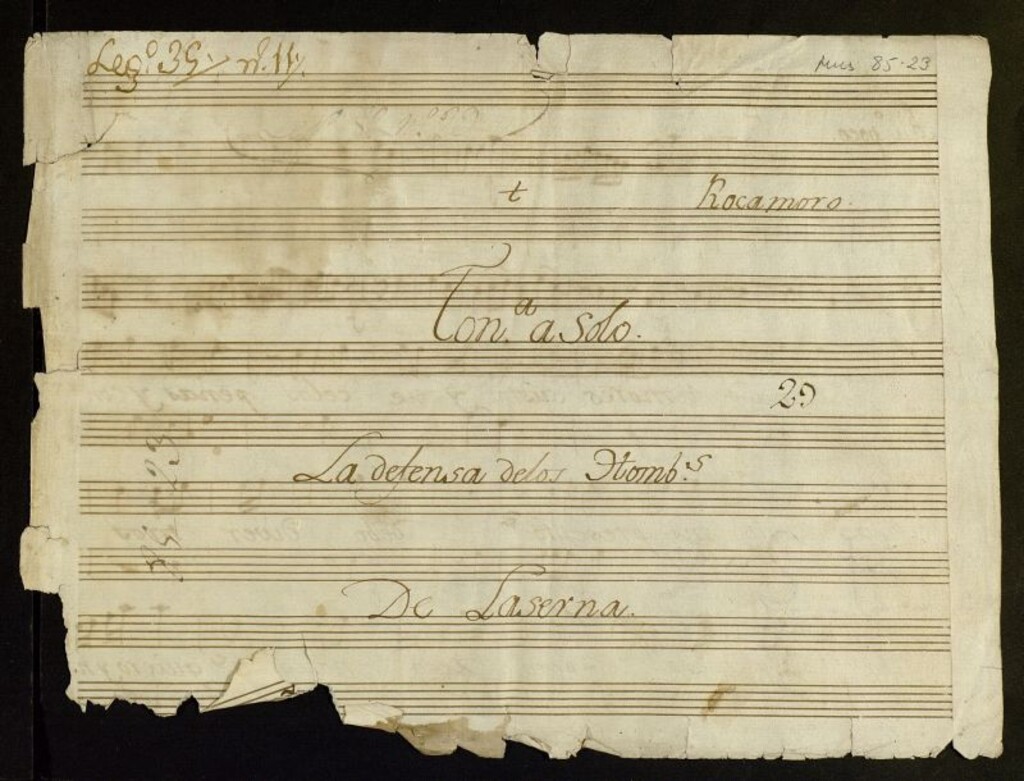 Leg.º 35, n.º 11,
Mus 85-23
t
Rocamoro.
Ton.ª a Solo.
29
La defensa delos Homb.s
De Laserna.